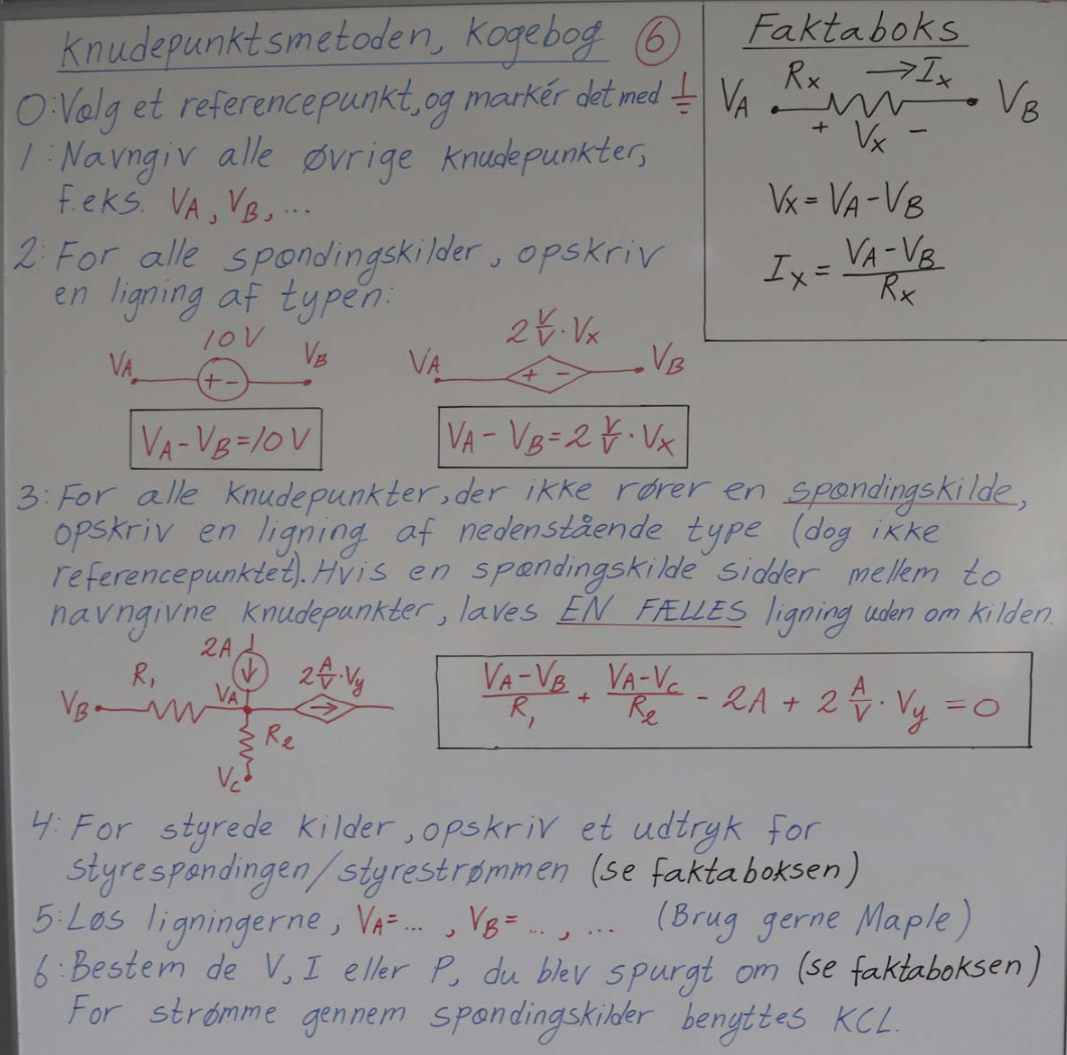 Knudepunktsmetoden, Kogebog ⑥
0: Vælg et referencepunkt, og markér det med ⏚
1: Navngiv alle øvrige knudepunkter,
f.eks. V_A, V_B, ...
2: For alle spændingskilder, opskriv
en ligning af typen:
10V
V_A + - V_B
V_A - V_B = 10V
2 V/V · V_x
V_A + - V_B
V_A - V_B = 2 V/V · V_x
3: For alle knudepunkter, der ikke rører en spændingskilde,
opskriv en ligning af nedenstående type (dog ikke
referencepunktet). Hvis en spændingskilde sidder mellem to
navngivne knudepunkter, laves EN FÆLLES ligning uden om kilden.
2A
R_1 V_A 2 A/V · V_y
V_B
R_2
V_C
(V_A - V_B)/R_1 + (V_A - V_C)/R_2 - 2A + 2 A/V · V_y = 0
4: For styrede kilder, opskriv et udtryk for
styrespændingen/styrestrømmen (se faktaboksen)
5: Løs ligningerne, V_A = ... , V_B = ... , ... (Brug gerne Maple)
6: Bestem de V, I eller P, du blev spurgt om (se faktaboksen)
For strømme gennem spændingskilder benyttes KCL.
Faktaboks
R_x → I_x
V_A V_B
+ V_x -
V_x = V_A - V_B
I_x = (V_A - V_B)/R_x